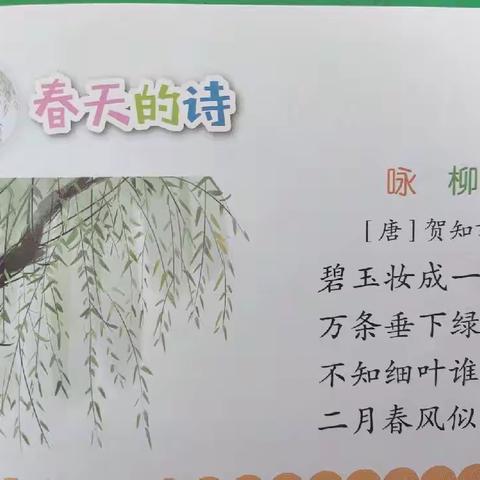 春天的诗
咏 柳
[唐]贺知
碧玉妆成一
万条垂下绿
不知细叶谁
二月春风似